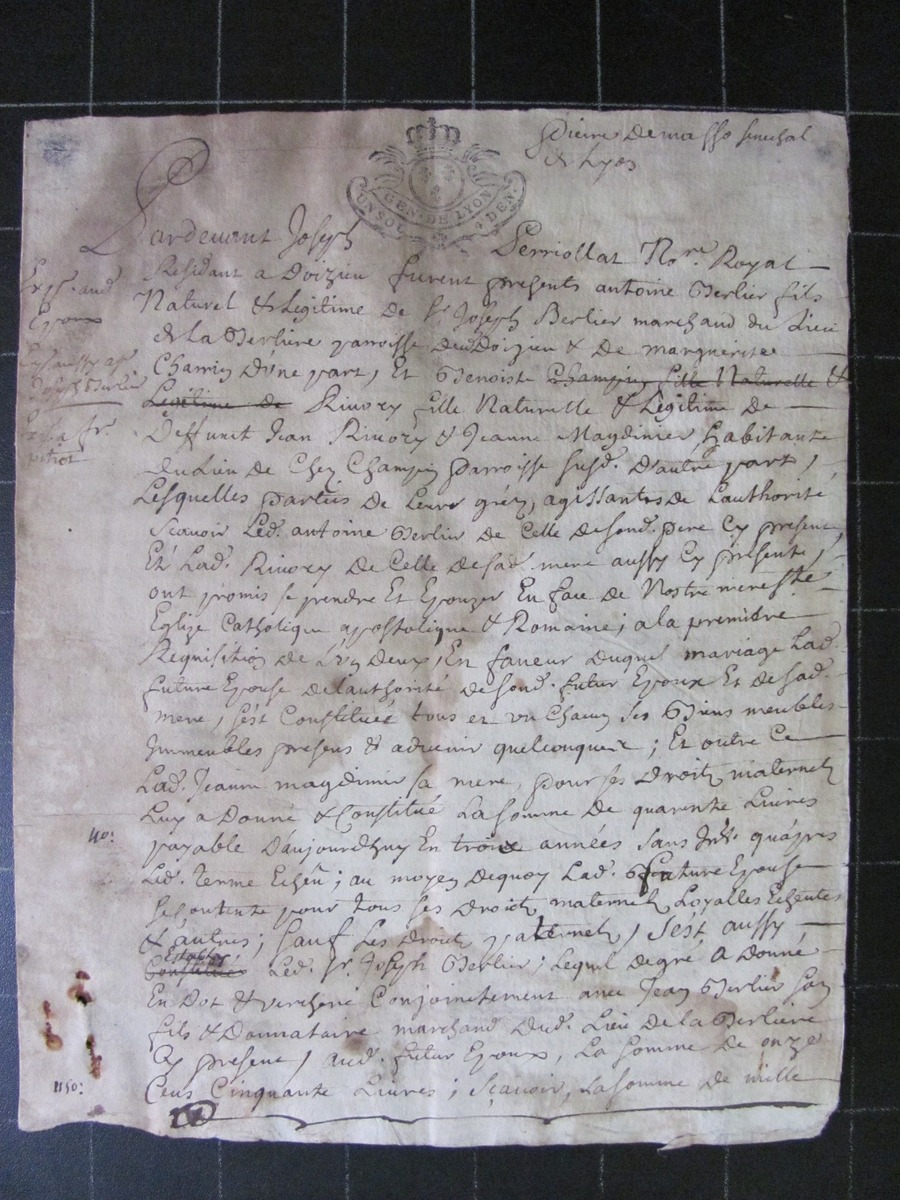 Pierre Demasso senechal
de Lyon
GEN. DE LYON
UN SOL 4 DEN.
Pardevant Joseph Perriollat No.re Royal
Residant a Doizieu furent presents antoine Berlier fils
Naturel & Legitime de Sr. Joseph Berlier marchand du Lieu
de La Berliere parroisse dud Doizieu & de marguerite
Charrin D'une part, Et Benoiste Champin fille Naturelle &
Legitime de Rivory fille Naturelle & Legitime de
Deffunct Jean Rivory & Jeanne Magdinier, habitante
du Lieu de Chez Champin parroisse susd. D'autre part,
Lesquelles parties de Leurs grez, agissantes de L'authorité
Scavoir Led. antoine Berlier de Celle desond. pere Cy present
Et Lad. Rivory de Celle desad. mere aussy Cy presente,
ont promis se prendre Et Epouzer En face de Nostre mere Ste
Eglize Catholique appostolique & Romaine, a la premiere
Requisition de L'un Deux; En faveur duquel mariage Lad.
future Epouse de L'authorité desond. futur Epoux Et desad.
mere, s'est Constituée tous et un Chacun ses Biens meubles
Immeubles presens & advenir quelconques; Et outre Ce
Lad. Jeanne magdinier sa mere, pour ses Droits maternels
Luy a Donné & Constitué La somme de quarente Livres
40:
payable D'aujourdhuy En trois années sans Intt. qu'apres
Led. terme Echeu; au moyen dequoy Lad. future Epouse
se Contente pour tous ses Droits maternels Loyalles Echeutes
& autres; sauf Les Droits paternels, s'est aussy
Estably
Constitué Led. Sr. Joseph Berlier, Lequel degré a Donné
En Dot & vercheré Conjointement avec Jean Berlier son
fils & Donnataire marchand dud. Lieu de La Berliere
Cy present, aud. futur Epoux, La somme de onze
1150:
Cens Cinquante Livres; sçavoir, La somme de mille